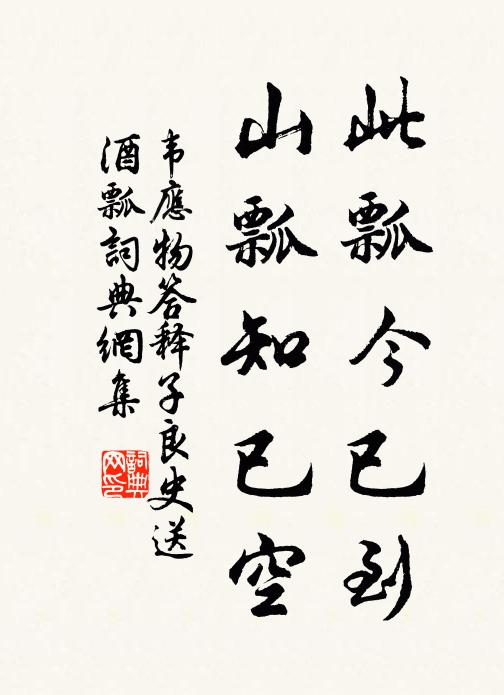 此瓢今已到
山瓢知已空
韦應物答释子良史送
酒瓢詞典網集
詞典
网印